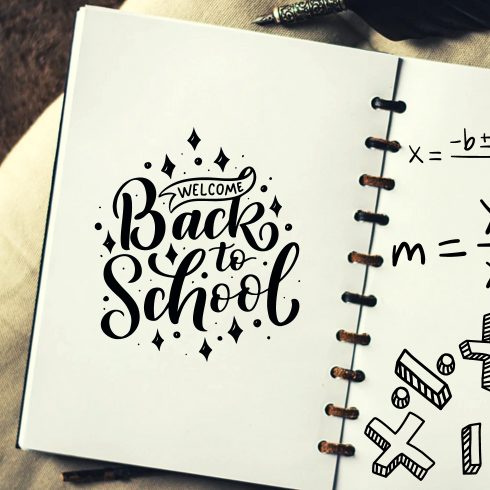 WELCOME
Back
to
School
x = -b ±
m =